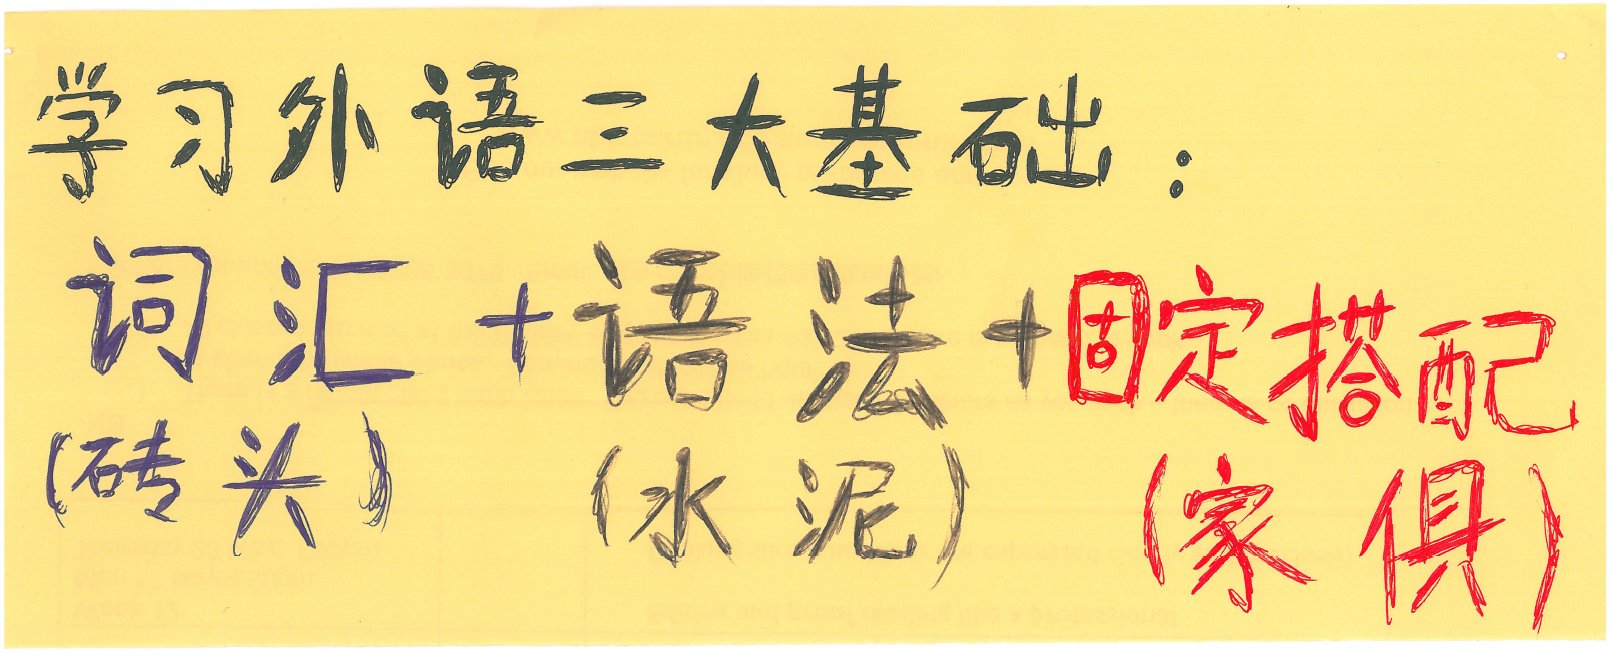 学习外语三大基础：
词汇+语法+固定搭配
(砖头) (水泥) (家俱)